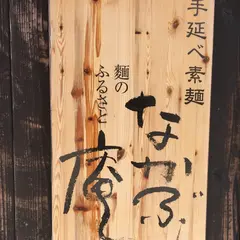 手延べ素麺
麺のふるさと
なかぶ
庵